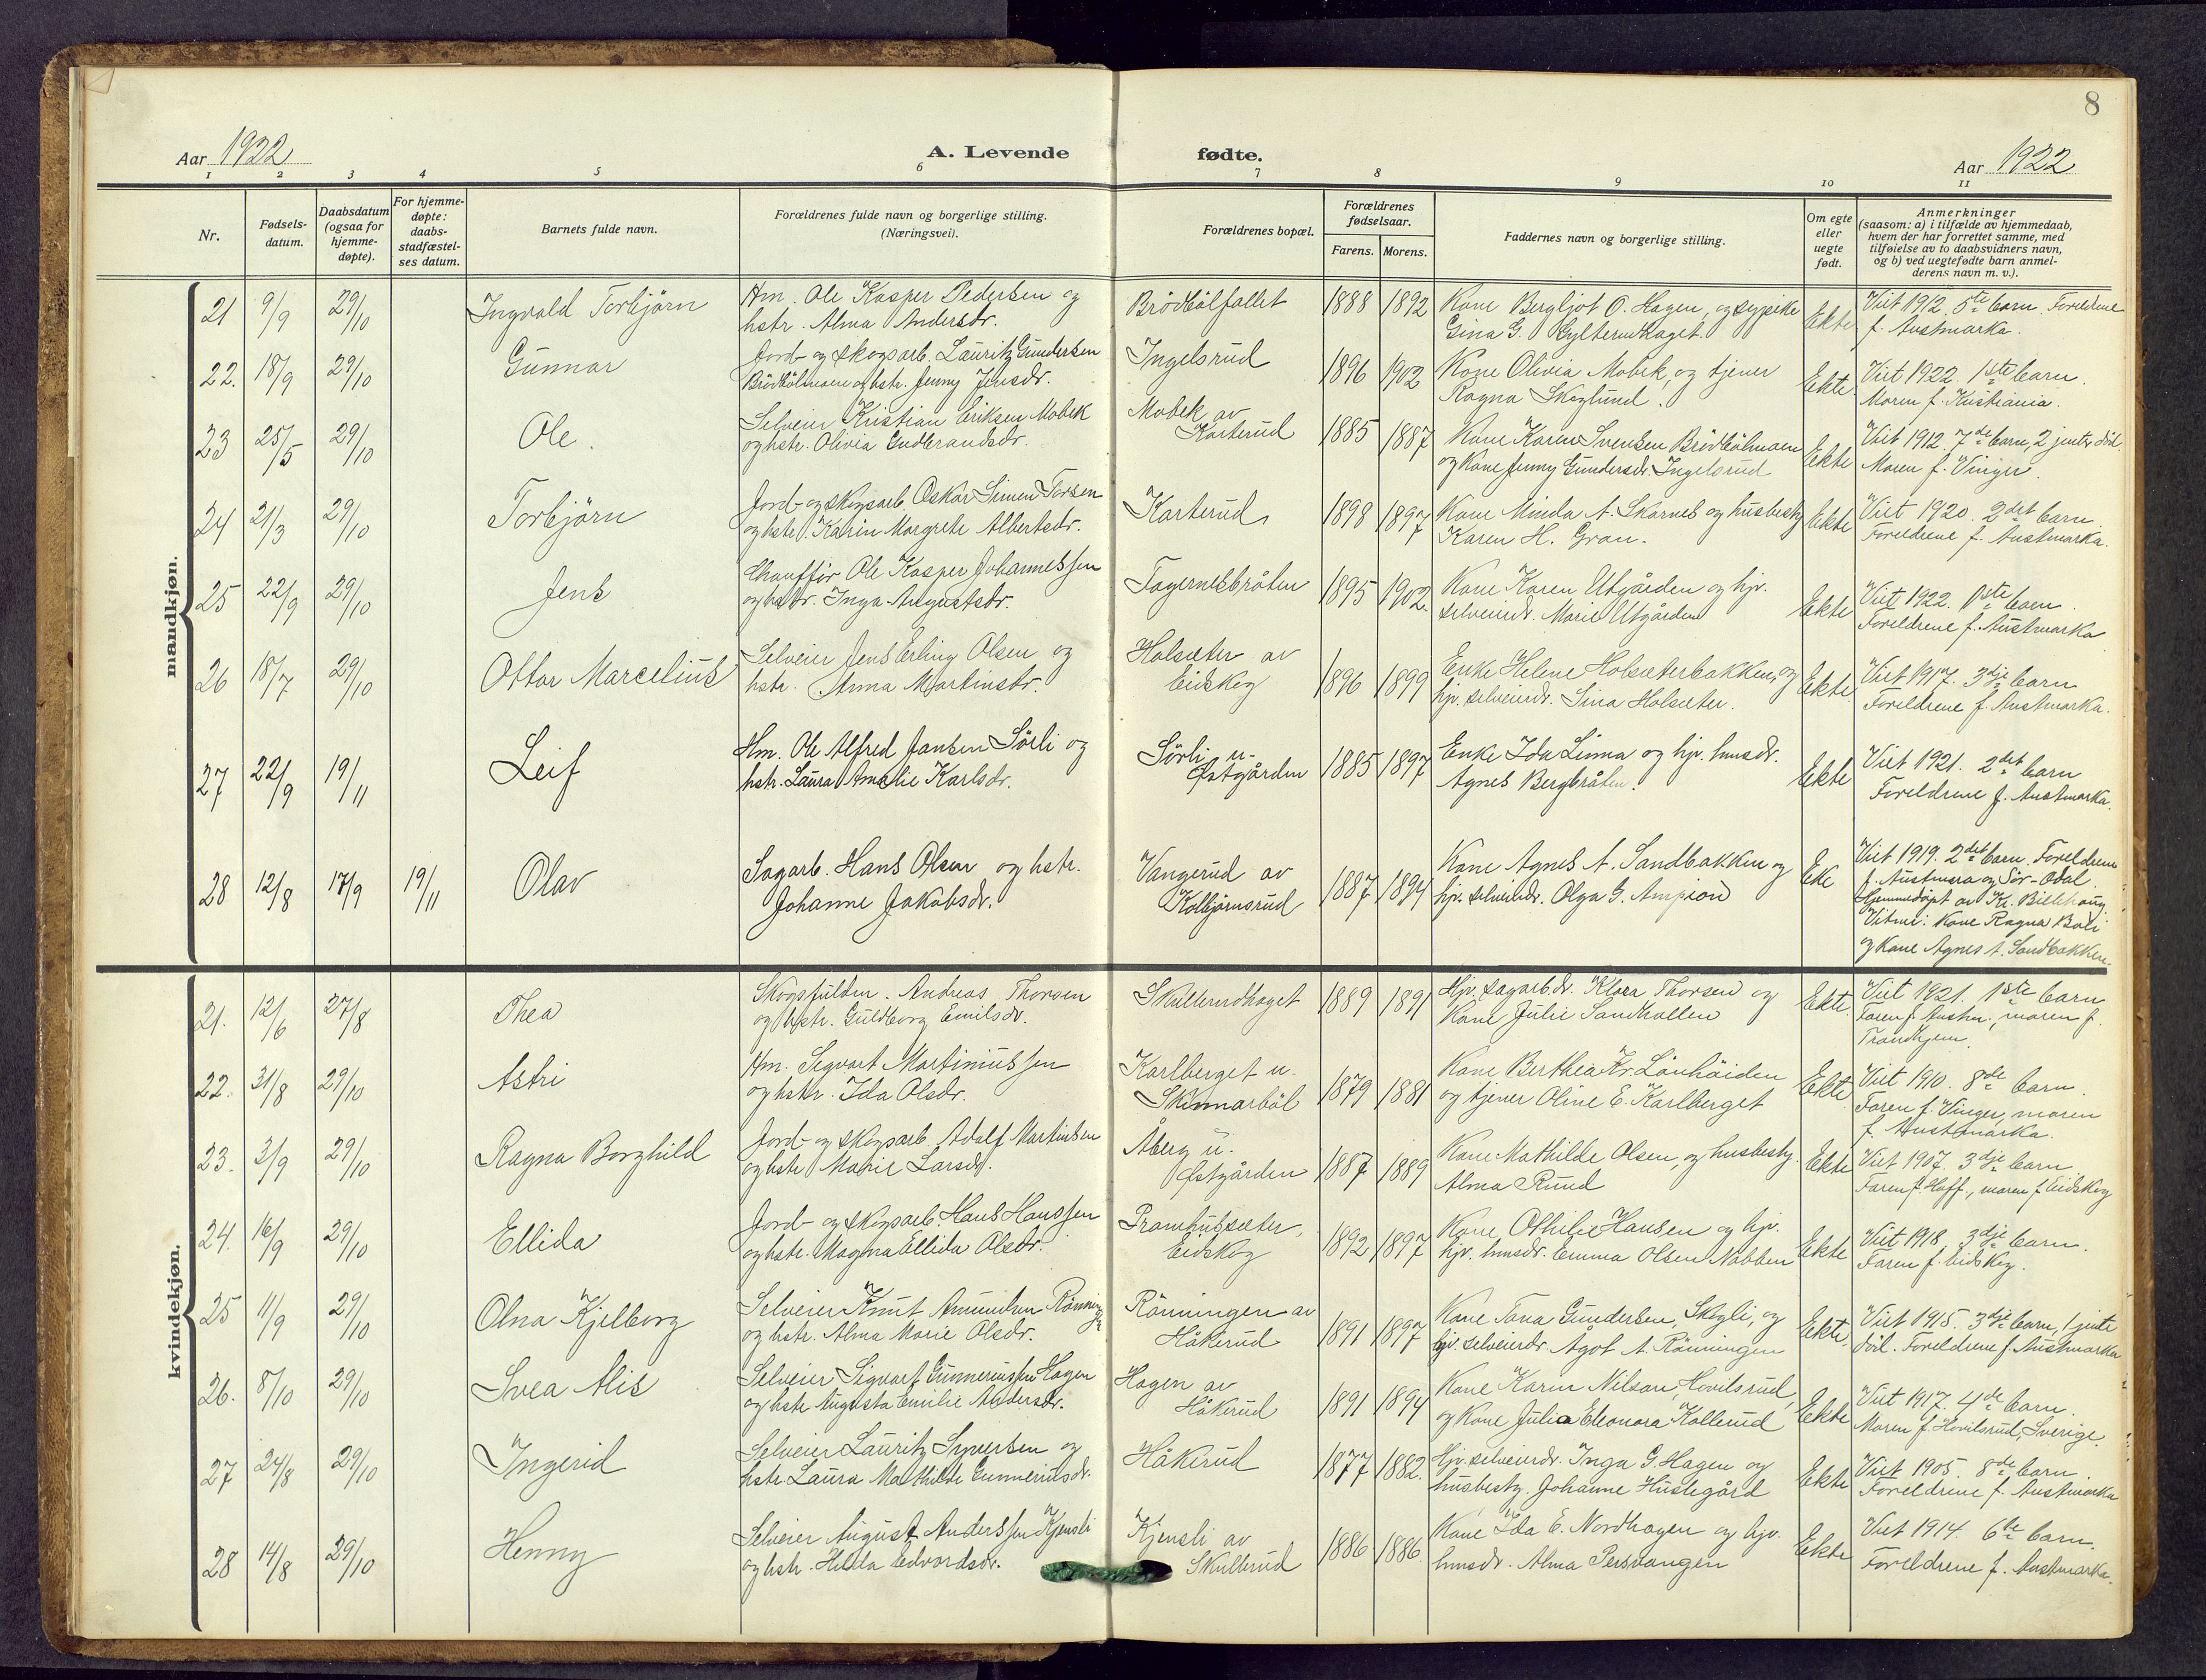 8
Aar 1922 A. Levende fødte. Aar 1922
1 2 3 4 5 6 7 8 9 10 11
Nr. Fødselsdatum. Daabsdatum (ogsaa for hjemmedøpte). For hjemmedøpte: daabsstadfæstelses datum. Barnets fulde navn. Forældrenes fulde navn og borgerlige stilling. (Næringsvei). Forældrenes bopæl. Forældrenes fødselsaar. Farens. Morens. Faddernes navn og borgerlige stilling. Om egte eller uegte født. Anmerkninger (saasom: a) i tilfælde av hjemmedaab, hvem der har forrettet samme, med tilføielse av to daabsvidners navn, og b) ved uegtefødte barn anmelderens navn m. v.).
mandkjøn.
21 9/9 29/10 Ingvald Torbjörn Hm. Ole Kasper Pedersen og Brödbölfallet 1888 1892 Kone Bergljot O. Hagen, og sypike Ekte Viet 1912. 5te barn. Foreldrene
hstr. Alma Andersdr. Gina G. f. Austmarka.
22. 18/9 29/10 Gunnar Jord- og skogsarb. Lauritz Gundersen Ingelsrud 1896 1902 Kone Olivia Mobek, og tjener Ekte Viet 1922. 1ste barn.
Brödbölmoen og hstr. Jenny Jensdr. Ragna Skoglund. Moren f. Kristiania.
23 25/5 29/10 Ole. Selveier Kristian Eriksen Mobek Mobek av 1885 1887 Kone Karen Svensen Brödbölmoen Ekte Viet 1912. 7de barn, 2 jenter död.
og hstr. Olivia Gudbrandsdr. Karterud og Kone Jenny Gundersdr. Ingelsrud Moren f. Vinger.
24 21/3 29/10 Torbjörn Jord- og skogsarb. Oskar Simen Torsen Karterud 1898 1897 Kone Minda A. Skarnes og husbesty. Ekte Viet 1920. 2det barn.
og hstr. Karin Margrete Albertsdr. Karen H. Gran. Foreldrene f. Austmarka.
25 22/9 29/10 Jens Chaufför Ole Kasper Johannessen Tagernesbråten 1895 1902. Kone Karen Utgården og hjv. Ekte Viet 1922. 1ste barn.
og hstr. Inga Augustsdr. selveierdr. Marie Utgården Foreldrene f. Austmarka
26 18/7 29/10 Ottar Marcelius Selveier Jens Erling Olsen og Holsæter av 1896 1899 Enke Helene Holsæterbakken, og Ekte Viet 1917. 3dje barn
hstr. Anna Martinsdr. Eidskog hjv. selveierdr. Sina Holsæter. Foreldrene f. Austmarka.
27 22/9 19/11 Leif Hm. Ole Alfred Jansen Sörli og Sörli u. 1885 1897 Enke Ida Linna og hjv. hmsdr. Ekte Viet 1921. 2det barn
hstr. Laura Amalie Karlsdr. Östgården Agnes Bergbråten. Foreldrene f. Austmarka.
28 12/8 17/9 19/11 Olav Sagarb. Hans Olsen og hstr. Vangerud av 1887 1894 Kone Agnes A. Sandbakken og Eke Viet 1919. 2det barn. Foreldrene
Johanne Jakobsdr. Kolbjørnsrud hjv. selveierdr. Olga G. Ampiand f. Austmara og Sör-Odal.
Hjemmedöpt av Kr. Billehaug.
Vitner: Kone Ragna Boli
og Kone Agnes A. Sandbakken.
kvindekjøn.
21. 12/6 27/8 Thea Skogsfuldm. Andreas Thorsen Skullerudhaget 1889 1891 Hjv. sagarb.dr. Klara Thorsen og Ekte. Viet 1921. 1ste barn
og hstr. Guldborg Emilsdr. Kone Julie Sandkollen Faren f. Austm., moren f.
Trondhjem.
22. 31/8 29/10 Astri Hm. Sigvart Martiniussen Karlberget u. 1879 1881 Kone Berthea Kr. Lönhöiden Ekte Viet 1910. 8de barn.
og hstr. Ida Olsdr. Skinnarböl og tjener Oline E. Karlberget Faren f. Vinger, moren
f. Austmarka.
23. 3/9 29/10 Ragna Borghild Jord- og skogsarb. Adolf Martinsen Åberg u. 1887 1889 Kone Mathilde Olsen, og husbesty. Ekte Viet 1907. 3dje barn.
og hstr. Marie Larsdr. Östgården Alma Rund Faren f. Hoff., moren f. Eidskog
24. 16/9 29/10 Ellida Jord- og skogsarb. Hans Hanssen Eidskog 1892 1897 Kone Othilie Hansen og hjv. Ekte Viet 1918. 3dje barn.
og hstr. Magna Ellida Olsdr. hjv. hmsdr. Emma Olsen Nabben Faren f. Eidskog.
25 11/9 29/10 Olna Kjelborg Selveier Knut Amundsen Rönningen Rönningen av 1891 1897 Kone Tona Gundersen, Skogli, og Ekte. Viet 1915. 3dje barn, 1 jente
og hstr. Alma Marie Olsdr. Håkerud hjv. selveierdr. Ågot A. Rönningen död. Foreldrene f. Austmarka
26. 8/10 29/10 Svea Alis Selveier Sigvart Gunneriussen Hagen Hagen av 1891 1894 Kone Karin Nilson, Hovilsrud, Ekte Viet 1917. 4de barn.
og hstr. Augusta Emilie Andersdr. Håkerud og Kone Julia Eleonora Kollerud Moren f. Hovilsrud, Sverige.
27 24/8 29/10 Ingerid Selveier Lauritz Syversen og Håkerud 1877 1882. Hjv. selveierdr. Inga G. Hagen og Ekte Viet 1905. 8de barn.
hstr. Laura Mathilde Gunneriusdr. husbesty. Johanne Hustegård Foreldrene f. Austmarka
28 14/8 29/10 Henny Selveier August Anderssen Kjensli Kjensli av 1886 1886. Kone Ida E. Nordhagen og hjv. Ekte Viet 1914. 6te barn.
og hstr. Hilda Edvardsdr. Skullerud hmsdr. Alma Persvangen Foreldrene f. Austmarka.